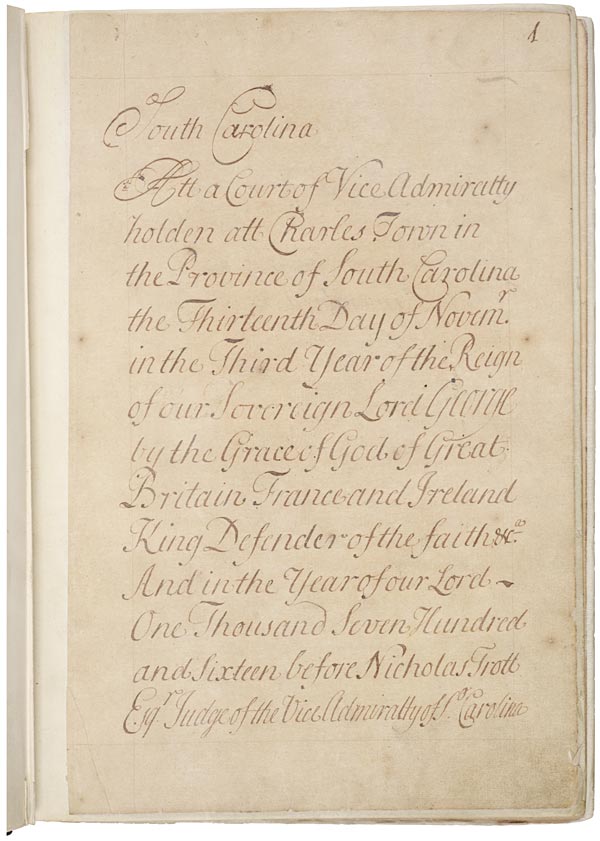 1
South Carolina
Att a Court of Vice Admiralty
holden att Charles Town in
the Province of South Carolina
the Thirteenth Day of Novemr.
in the Third Year of the Reign
of our Sovereign Lord George
by the Grace of God of Great
Britain France and Ireland
King Defender of the faith &ca
And in the Year of our Lord ~
One Thousand Seven Hundred
and Sixteen before Nicholas Trott
Esqr Judge of the Vice Admiralty of So. Carolina